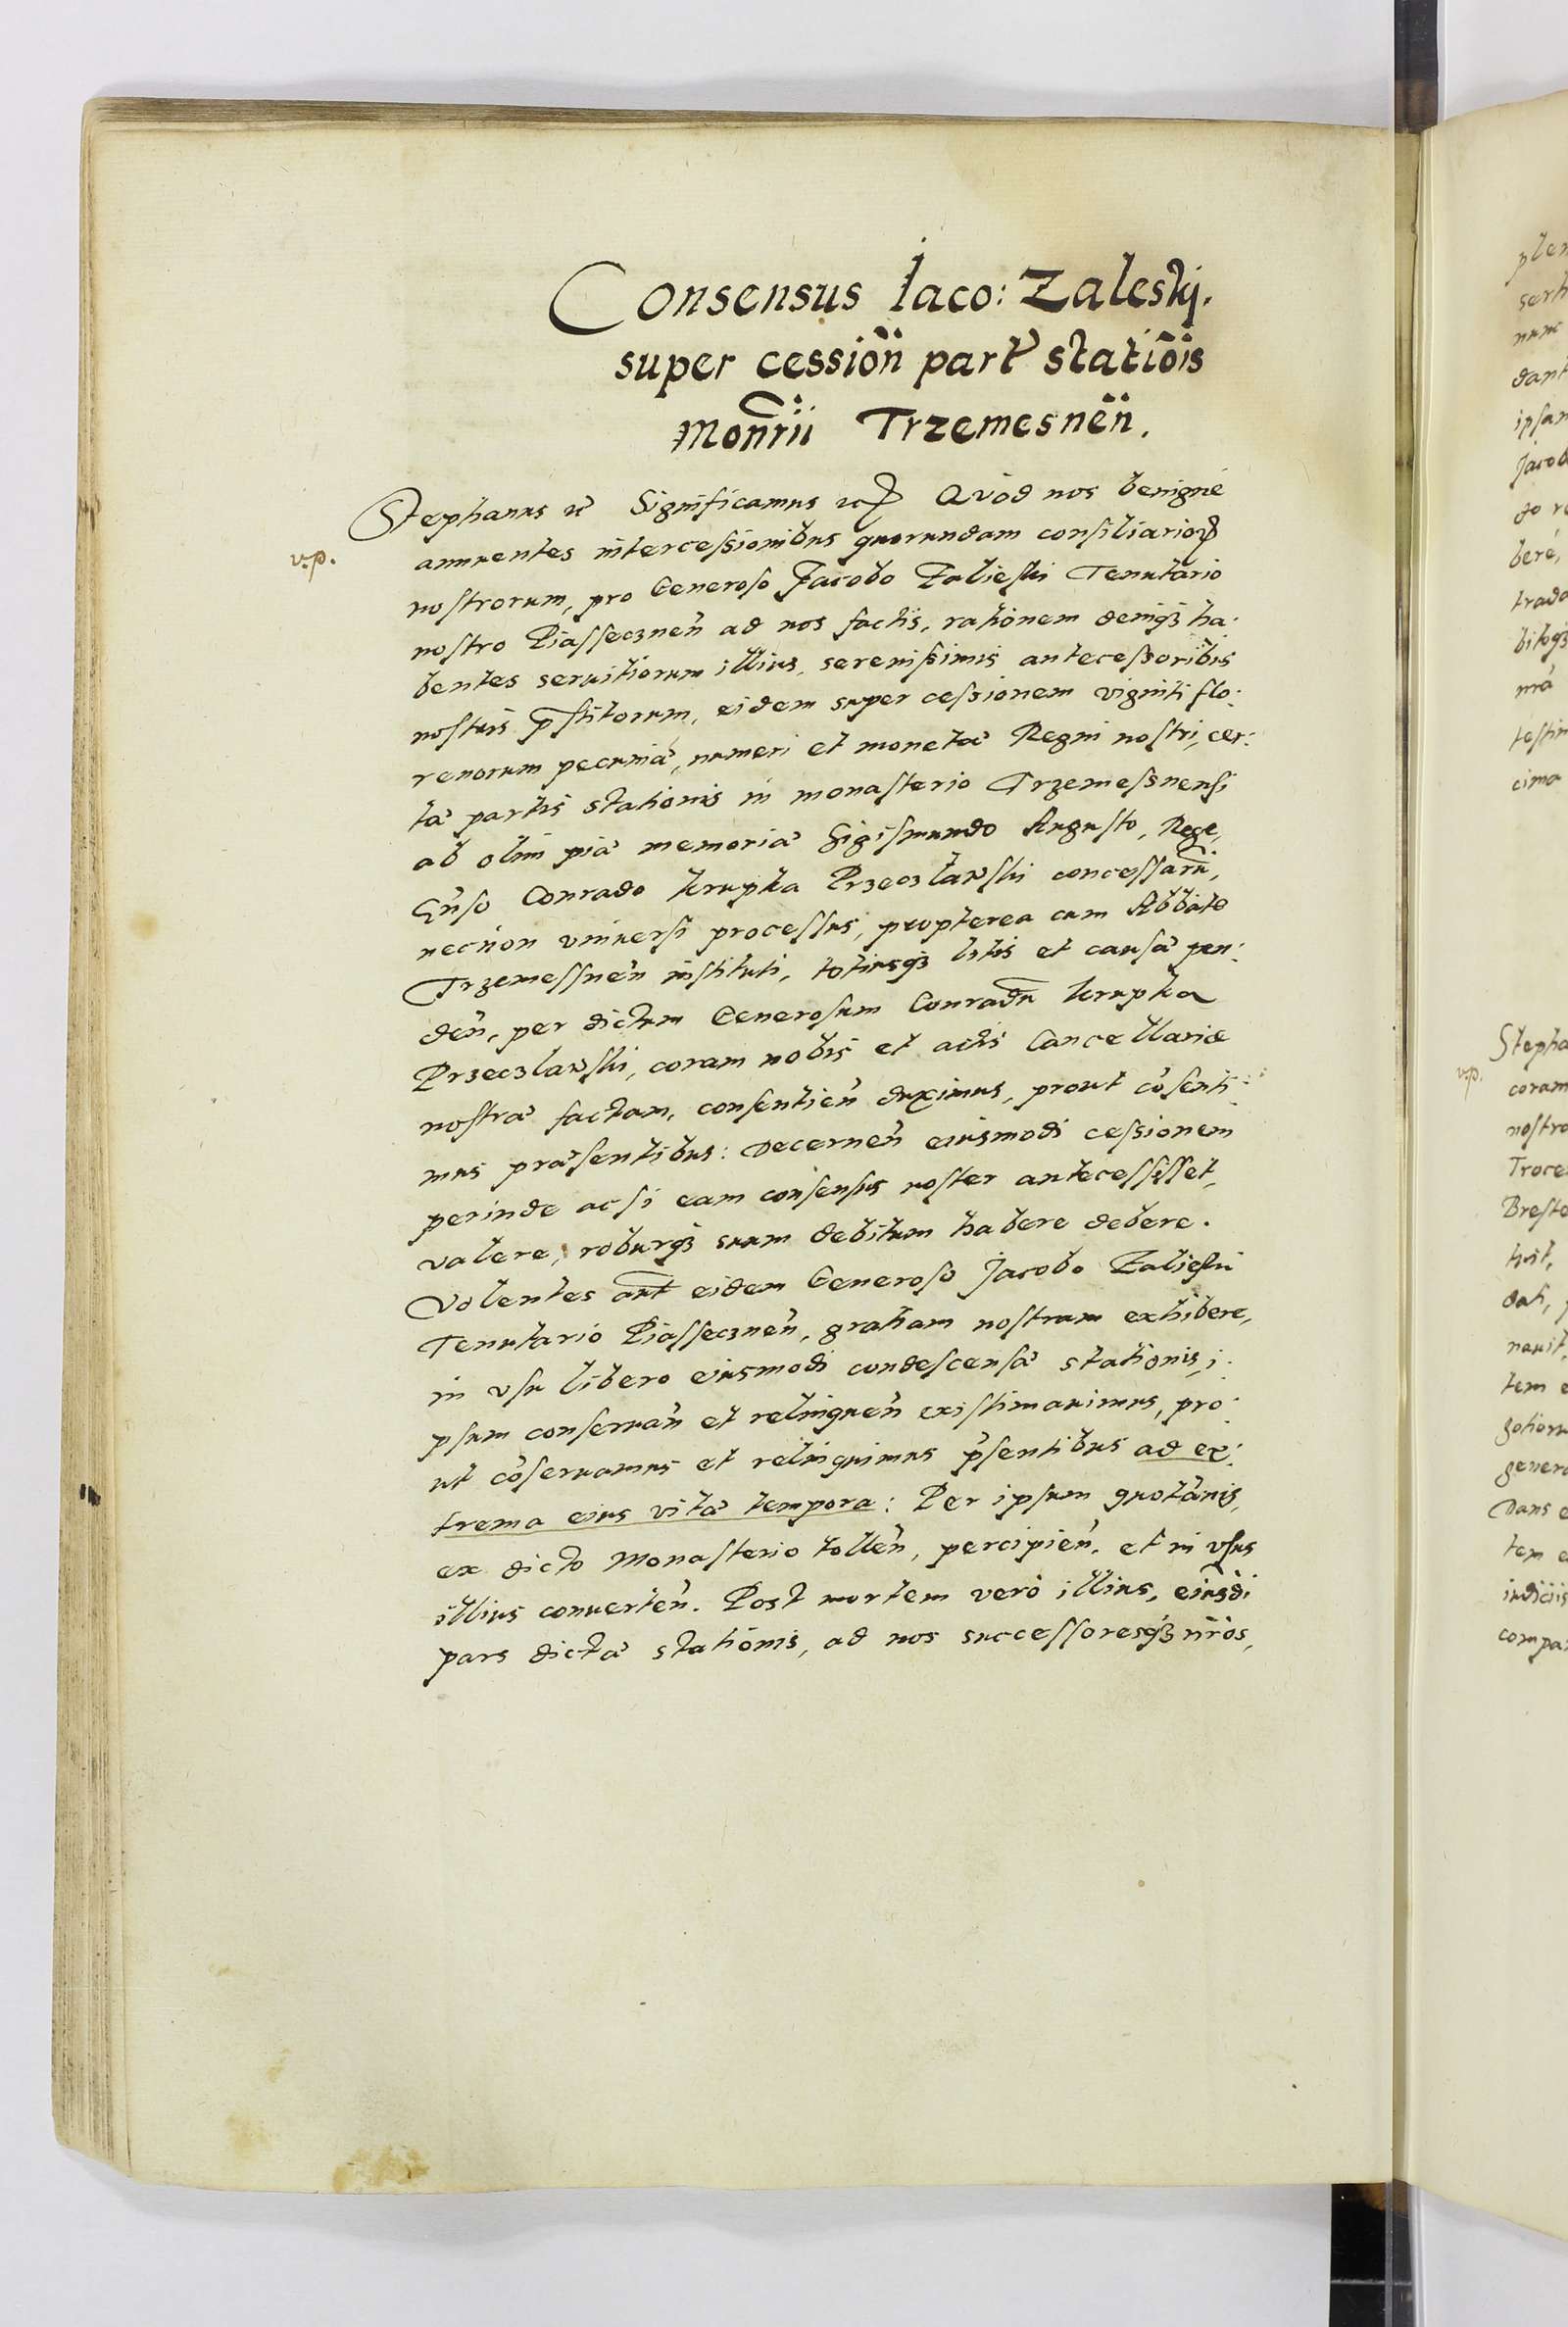 Consensus Iaco: Zaleskj.
super cessioñ part statiõis
Monrii Trzemesneñ.
Stephanus Significamus Quòd nos benignè
v.p.
annuentes intercessionibus quorundam consiliarior
nostrorum, pro Generoso Jacobo Zalieski Tenutario
nostro Piassecznen̄ ad nos factis, rationem deniqȝ ha:
bentes seruitiorum illius, serenissimis antecessoribus
nostris p̄stitorum, eidem super cessionem viginti flo:
renorum pecuniæ, numeri et monetæ Regni nostri, cer:
tæ partis stationis in monasterio Trzemessnensi
ab olim piæ memoriæ Sigismundo Augusto, Rege,
Gn̄so Conrado Krupka Przeczlawski concessarū,
necnon vniuersi processus, propterea cum Abbate
Trzemessnen̄ instituti, totiusqȝ litis et causæ pen:
den̄, per dictum Generosum Conradū Krupka
Przeczlawski, coram nobis et actis Cancellariæ
nostræ factam, consentien̄ duximus, prout cōsenti:
mus præsentibus: Decernen̄ eiusmodi cessionem
perinde ac si eam consensus noster antecessisset,
valere, roburqȝ suum debitum habere debere.
Volentes aut̄ eidem Generoso Jacobo Zalieski
Tenutario Piassecznen̄, gratiam nostram exhibere,
in vsu libero eiusmodi condescensæ stationis, i:
psum conseruan̄ et relinquen̄ existimauimus, pro:
ut cōseruamus et relinquimus p̄sentibus ad ex:
trema eius vitæ tempora: Per ipsum quotānis,
ex dicto Monasterio tollen̄, percipien̄, et in vsus
illius conuerten̄. Post mortem verò illius, eiusdi
pars dictæ stationis, ad nos successoresqȝ nr̄os,
plen
sert
nunc
dant
ipsam
Jacob
do re
berè,
trada
bitoqȝ
mā
testim
cima
Stepha
v.p.
coram
nostro
Troce
Breste
tuit,
dati,
nauit,
tem e
gotioru
genero
Dans e
tem e
iudiciis
compar